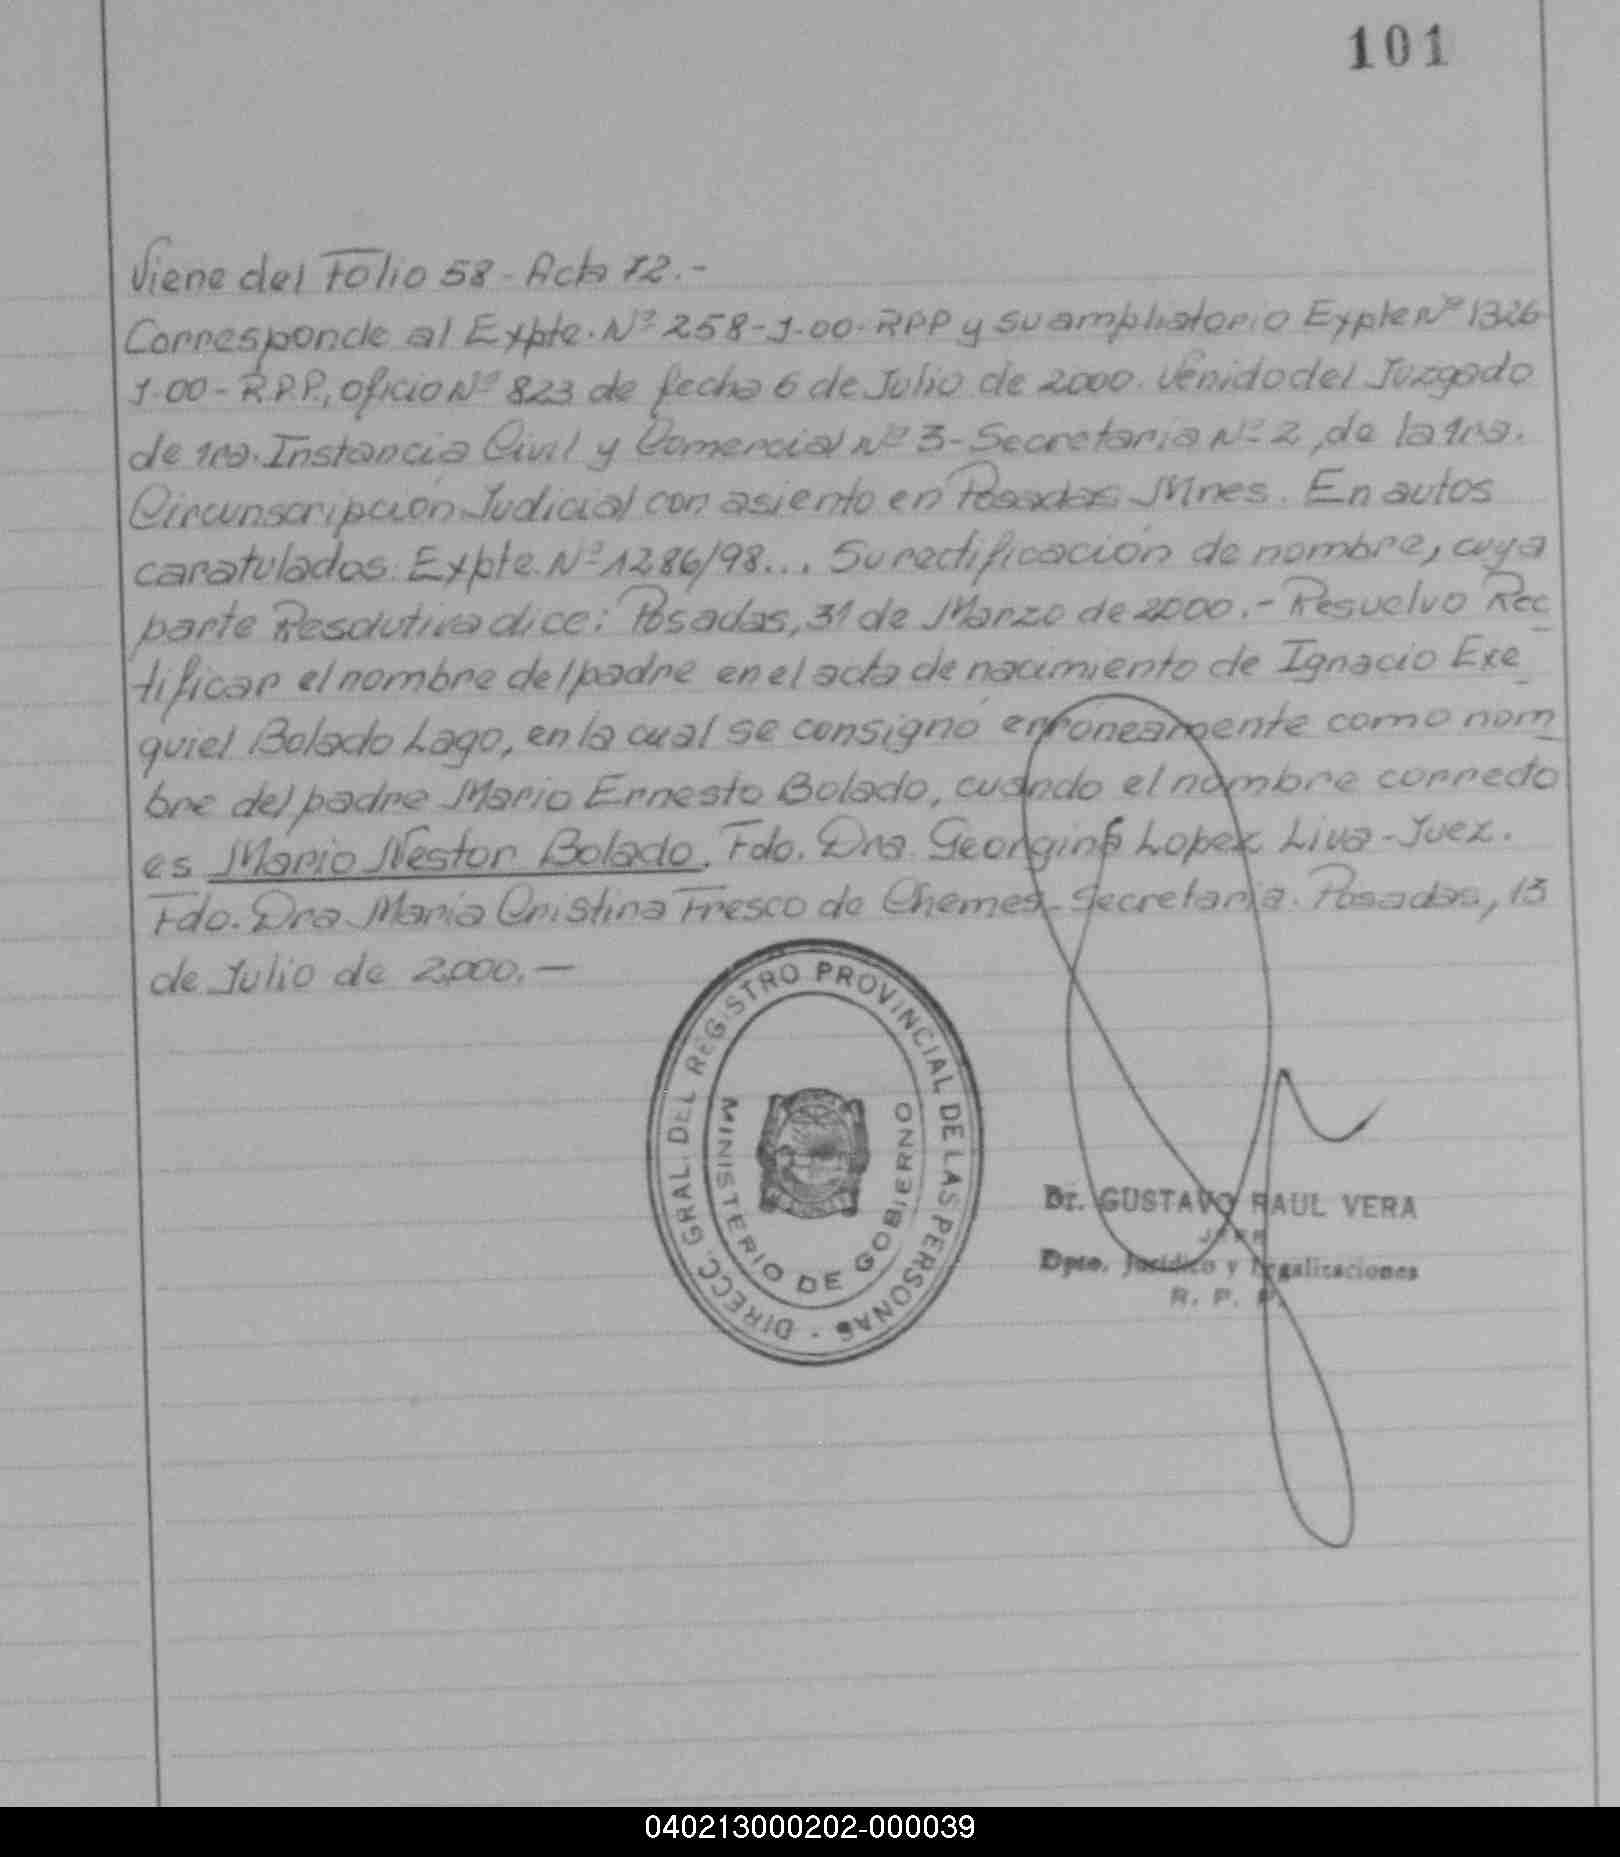 101
Viene del Folio 58 - Acta 72.-
Corresponde al Expte. Nº 258-J-00-RPP y su ampliatorio Expte Nº 1326
J-00-R.P.P., oficio Nº 823 de fecha 6 de Julio de 2000. Venido del Juzgado
de 1ra. Instancia Civil y Comercial Nº 3 - Secretaria Nº 2, de la 1ra.
Circunscripción Judicial con asiento en Posadas Mnes. En autos
caratulados: Expte. Nº 1286/98... Su rectificación de nombre, cuya
parte Resolutiva dice: Posadas, 31 de Marzo de 2000.- Resuelvo Rec
tificar el nombre del padre en el acta de nacimiento de Ignacio Exe
quiel Bolado Lago, en la cual se consignó erróneamente como nom
bre del padre Mario Ernesto Bolado, cuando el nombre correcto
es Mario Nestor Bolado. Fdo. Dra. Georgina Lopez Liva - Juez.
Fdo. Dra. Maria Cristina Fresco de Chemes - Secretaria. Posadas, 13
de Julio de 2,000.—
DIRECC. GRAL. DEL REGISTRO PROVINCIAL DE LAS PERSONAS -
MINISTERIO DE GOBIERNO
Dr. GUSTAVO RAUL VERA
JEFE
Dpto. Jurídico y Legalizaciones
R. P. P.
040213000202-000039